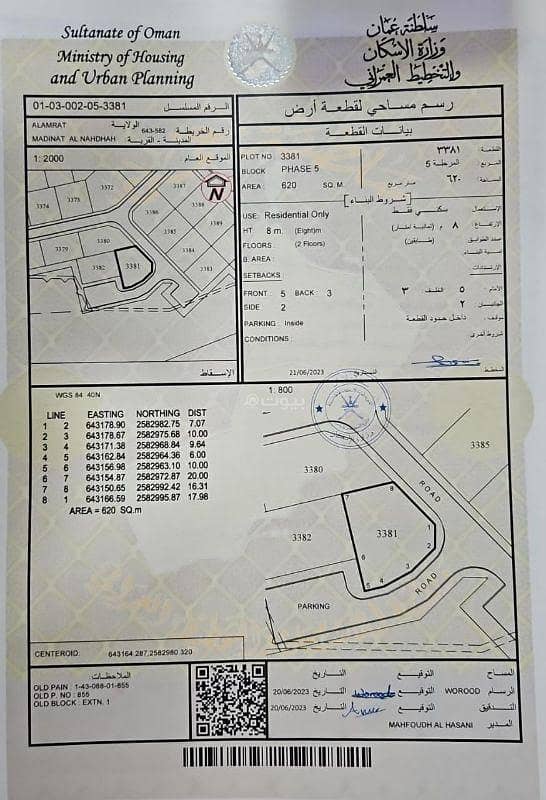 Sultanate of Oman
Ministry of Housing
and Urban Planning
سلطنة عمان
وزارة الإسكان
والتخطيط العمراني
01-03-002-05-3381 الرقم المسلسل
ALAMRAT الولاية
643-582 رقم الخريطة
MADINAT AL NAHDHAH المدينة - القرية:
1:2000 الموقع العام
3372
3387
3373
3374
3386
3388
3385
3389
3379
3380
3384
3382
3381
3383
N
الإسقاط
رسم مساحي لقطعة أرض
بيانات القطعة
PLOT NO 3381 ٣٣٨١ القطعة
BLOCK PHASE 5 المرحلة 5 المربع
AREA: 620 SQ. M. متر مربع ٦٢٠ المساحة
شروط البناء
USE: Residential Only سكني فقط الإستعمال
HT 8 m. (Eight)m ٨ م (ثمانية أمتار) الإرتفاع
FLOORS: (2 Floors) (طابقين) عدد الطوابق
B. AREA:
SETBACKS الإرتدادات
FRONT: 5 BACK: 3 ٣ الخلف ٥ الأمام
SIDE 2 ٢ الجانبين
PARKING: Inside داخل حدود القطعة موقف
CONDITIONS: شروط أخرى
21/06/2023 التاريخ المخطط
WGS 84 40N
1:800
LINE EASTING NORTHING DIST
1 2 643178.90 2582982.75 7.07
2 3 643178.67 2582975.68 10.00
3 4 643171.38 2582968.84 9.64
4 5 643162.84 2582964.36 6.00
5 6 643156.98 2582963.10 10.00
6 7 643154.87 2582972.87 20.00
7 8 643150.65 2582992.42 16.31
8 1 643166.59 2582995.87 17.98
AREA = 620 SQ.m
بيوت
3385
3380
ROAD
8
7
3381
1
3382
2
6
3
5
4
ROAD
PARKING
CENTEROID: 643164.287,2582980.320
الملاحظات
OLD PAIN : 1-43-088-01-855
OLD P. NO : 855
OLD BLOCK : EXTN. 1
التاريخ التوقيع المساح
20/06/2023 التاريخ Worood التوقيع WOROOD الرسام
20/06/2023 التاريخ التوقيع التدقيق
MAHFOUDH AL HASANI المدير